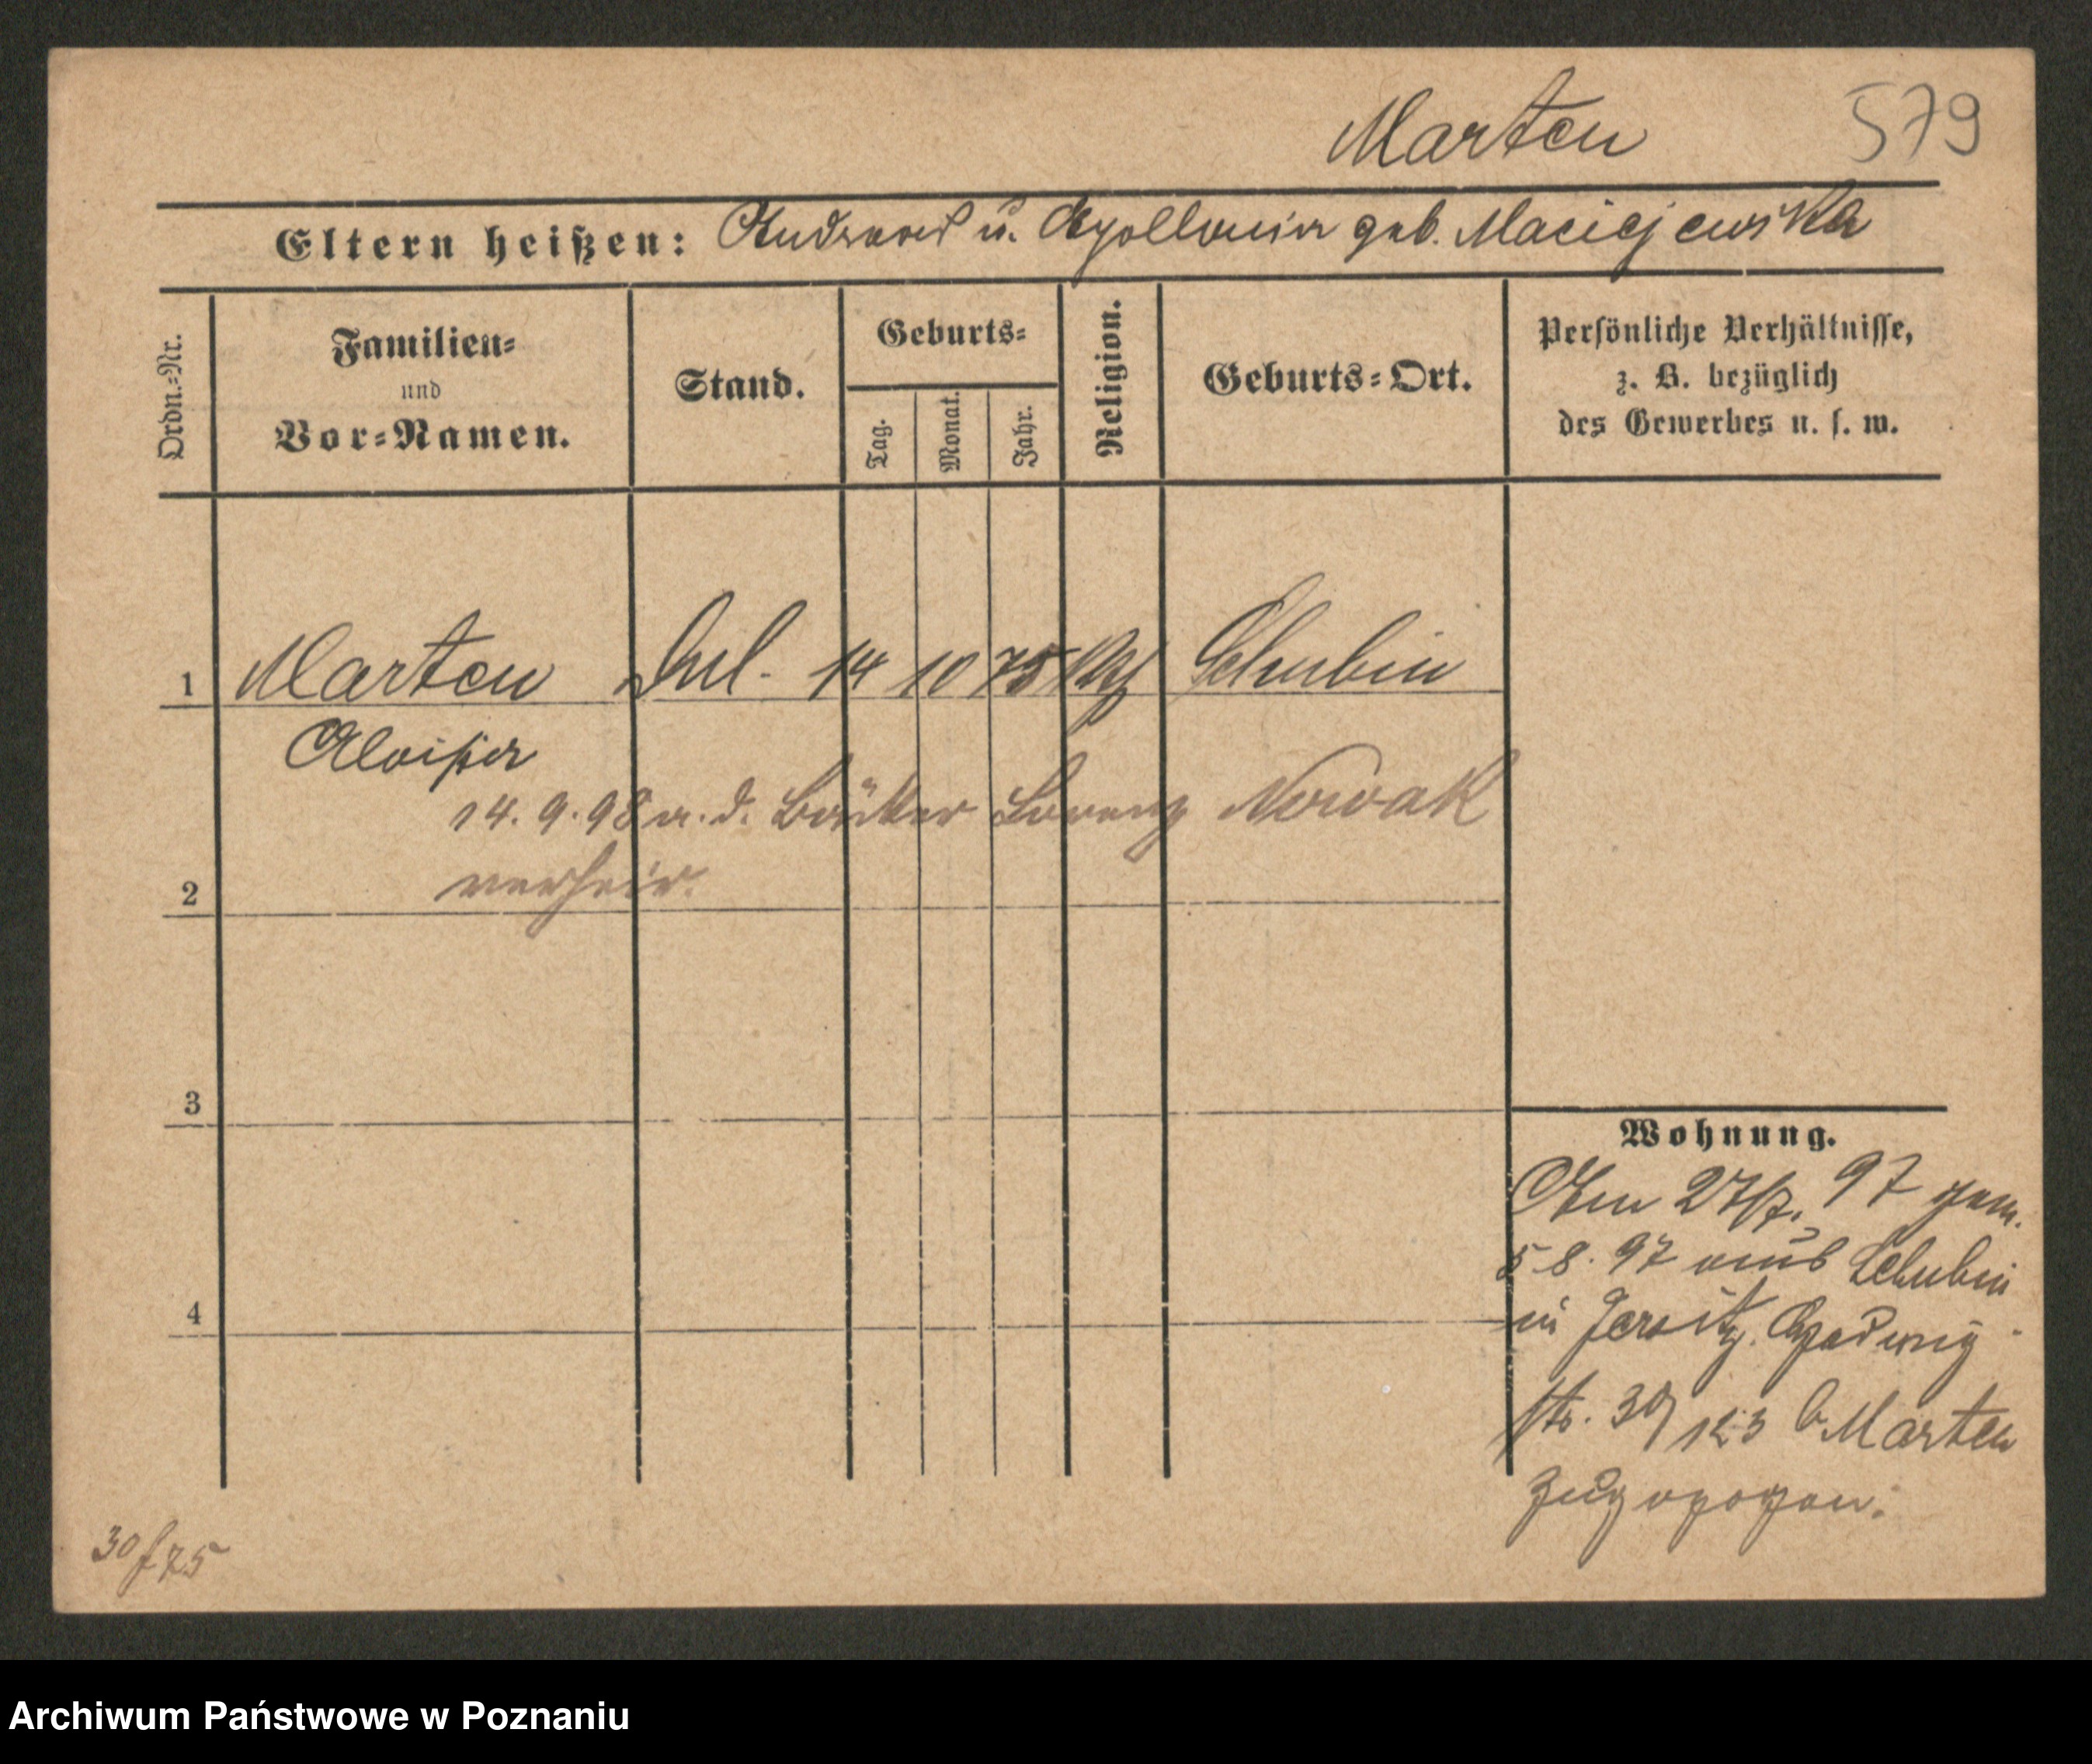 Marten 579
Eltern heißen: Andreas u. Apollonia geb. Maciejewska
Ordn.=Nr.
Familien=
und
Vor=Namen.
Stand.
Geburts=
Tag.
Monat.
Jahr.
Religion.
Geburts=Ort.
Persönliche Verhältnisse,
z. B. bezüglich
des Gewerbes u. s. w.
1 Marten 14 10 75 Schubin
14. 9. 98 a. d. Bäcker Lorenz Nowak
2 verheir.
3
4
Wohnung.
Am 27/7. 97 gem.
5 8. 97 aus Schubin
in Jersitz. Hedwig
str. 30/ 123 b Marten
zugezogen.
30/75
Archiwum Państwowe w Poznaniu